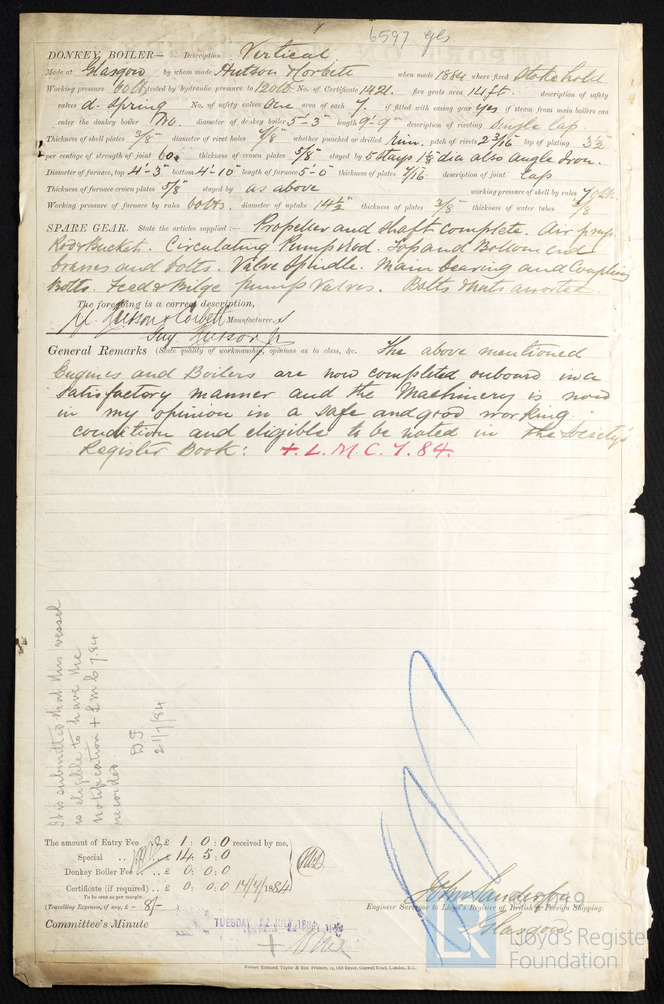 6597 gls
DONKEY BOILER— Description Vertical
Made at Glasgow by whom made Hutson & Corbett when made 1884 where fixed Stokehold
Working pressure 60 lbs tested by hydraulic pressure to 120 lbs No. of Certificate 1421. fire grate area 14 ft. description of safety
valves d. Spring No. of safety valves One area of each 7. if fitted with easing gear yes if steam from main boilers can
enter the donkey boiler No. diameter of donkey boiler 5'-3" length 9'-9" description of riveting Single Lap.
Thickness of shell plates 3/8" diameter of rivet holes 7/8" whether punched or drilled pitch of rivets 2 3/16 lap of plating
per centage of strength of joint 60 thickness of crown plates 5/8" stayed by 5 stays 1 5/8 dia also angle Iron.
Diameter of furnace, top 4'-3" bottom 4'-10" length of furnace 5'-0" thickness of plates 7/16 description of joint Lap
Thickness of furnace crown plates 5/8" stayed by as above working pressure of shell by rules 70 lbs.
Working pressure of furnace by rules 60 lbs. diameter of uptake 14 1/2" thickness of plates 3/8" thickness of water tubes 3/8
SPARE GEAR. State the articles supplied:— Propeller and Shaft complete. Air pump
Rod & Bucket. Circulating Pump Rod. Top and Bottom end
brasses and bolts. Valve Spindle. Main bearing and Coupling
Bolts. Feed & Bilge pump Valves. Bolts & nuts assorted.
The foregoing is a correct description,
Hutson & Corbett Manufacturer s
Guy Hutson Jr
General Remarks (State quality of workmanship, opinions as to class, &c. The above mentioned
Engines and Boilers are now completed onboard in a
satisfactory manner and the Machinery is now
in my opinion in a safe and good working
condition and eligible to be noted in the Society's
Register Book: + L.M.C. 7.84.
It is submitted that this vessel
is eligible to have the
notification + LMC 7.84
recorded
21/7/84
The amount of Entry Fee .. £ 1 : 0 : 0 received by me,
Special .. £ 14 : 5 : 0
Donkey Boiler Fee .. £ 0 : 0 : 0
Certificate (if required) .. £ 0 : 0 : 0 17/7/1884
To be sent as per margin.
(Travelling Expenses, if any, £ - 8/-)
John Sanderson
Engineer Surveyor to Lloyd's Register of British & Foreign Shipping.
Glasgow.
Committee's Minute
TUESDAY 22 JULY 1884
Lloyd's Register
Foundation